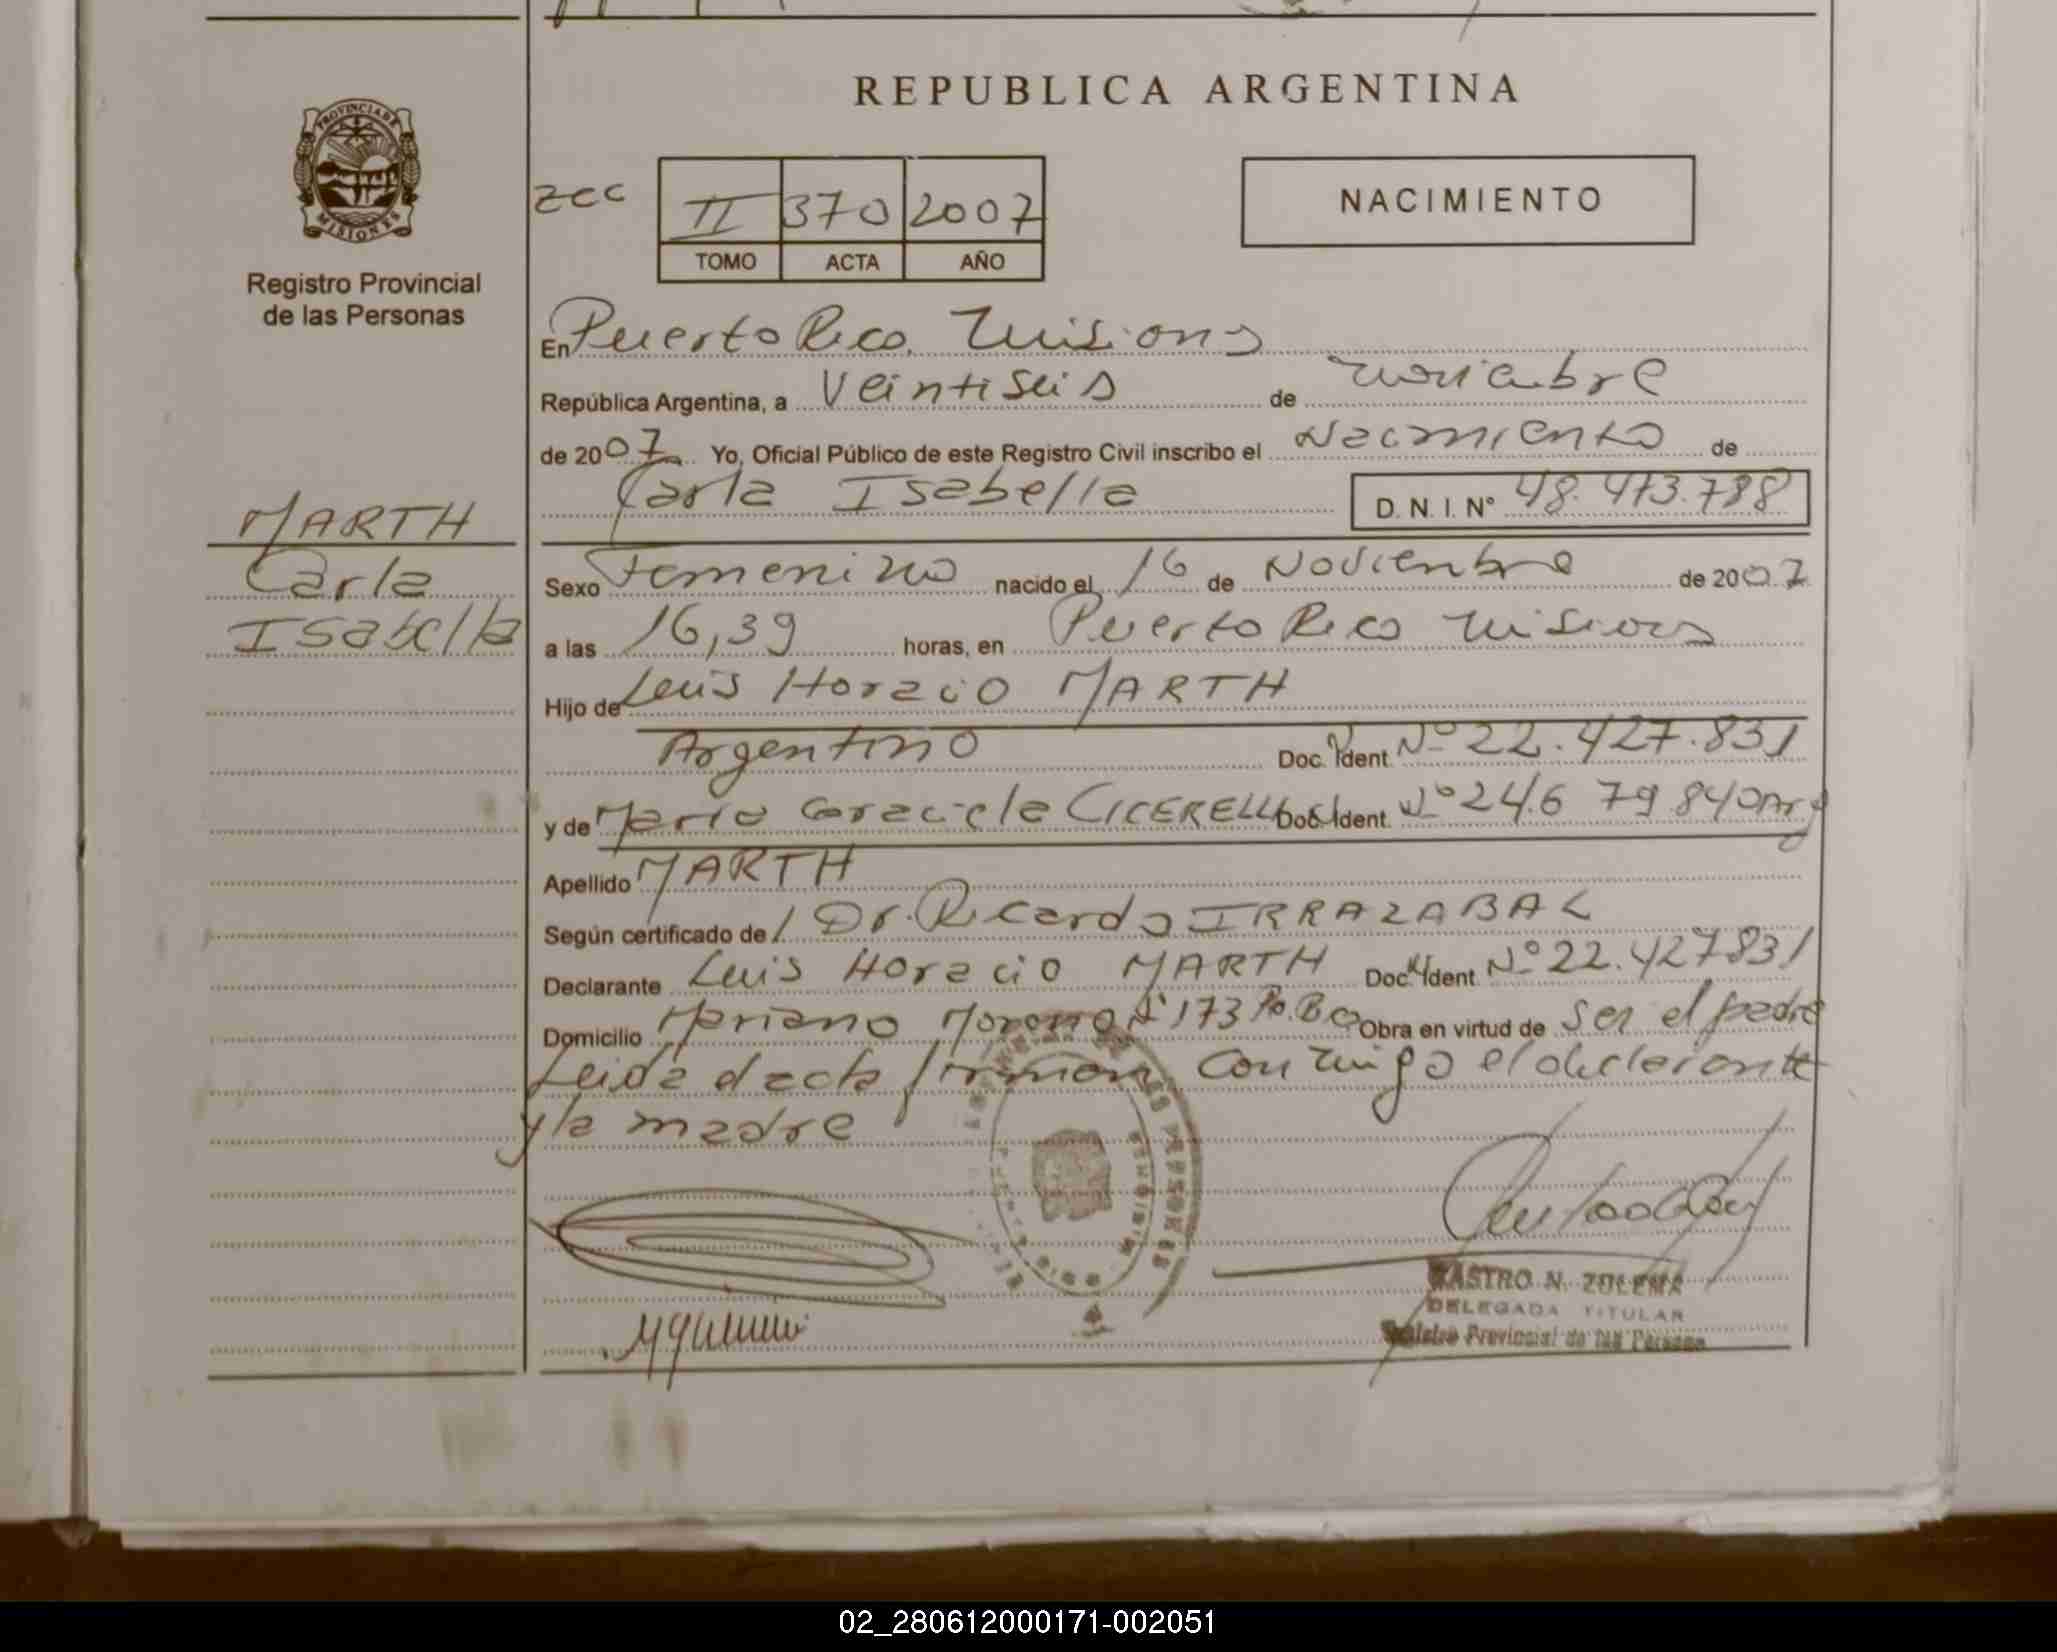 REPUBLICA ARGENTINA
PROVINCIA DE MISIONES
Registro Provincial
de las Personas
zcc
II 370 2007
TOMO ACTA AÑO
NACIMIENTO
En Puerto Rico, Misiones
República Argentina, a Veintiseis de noviembre
de 2007 Yo, Oficial Público de este Registro Civil inscribo el Nacimiento de
Carla Isabella D. N. I. Nº 48.473.788
MARTH
Carla
Isabella
Sexo Femenino nacido el 16 de Noviembre de 2007
a las 16,39 horas, en Puerto Rico Misiones
Hijo de Luis Horacio MARTH
Argentino Doc. Ident. Nº 22.427.831
y de Maria Graciela CICERELLI Doc. Ident. Nº 24.679840 Arg
Apellido MARTH
Según certificado de Dr. Ricardo IRRAZABAL
Declarante Luis Horacio MARTH Doc. Ident. Nº 22.427831
Domicilio Mariano Moreno Nº 173 Pto. Rco Obra en virtud de ser el padre
Leida el acta firman conmigo el declarante
y la madre
CASTRO N. ZULEMA
DELEGADA TITULAR
Registro Provincial de las Personas
02_280612000171-002051